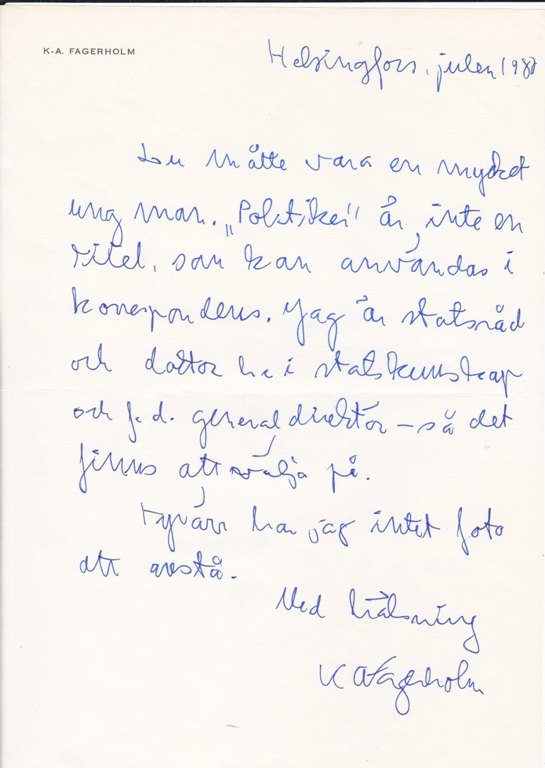 K-A. FAGERHOLM
Helsingfors, julen 1980
Du måtte vara en mycket
ung man. „Politiker" är inte en
titel, som kan användas i
korrespondens. Jag är statsråd
och doktor h c i statskunskap
och f.d. generaldirektör – så det
finns att välja på.
Tyvärr har jag intet foto
att avstå.
Med hälsning
K A Fagerholm